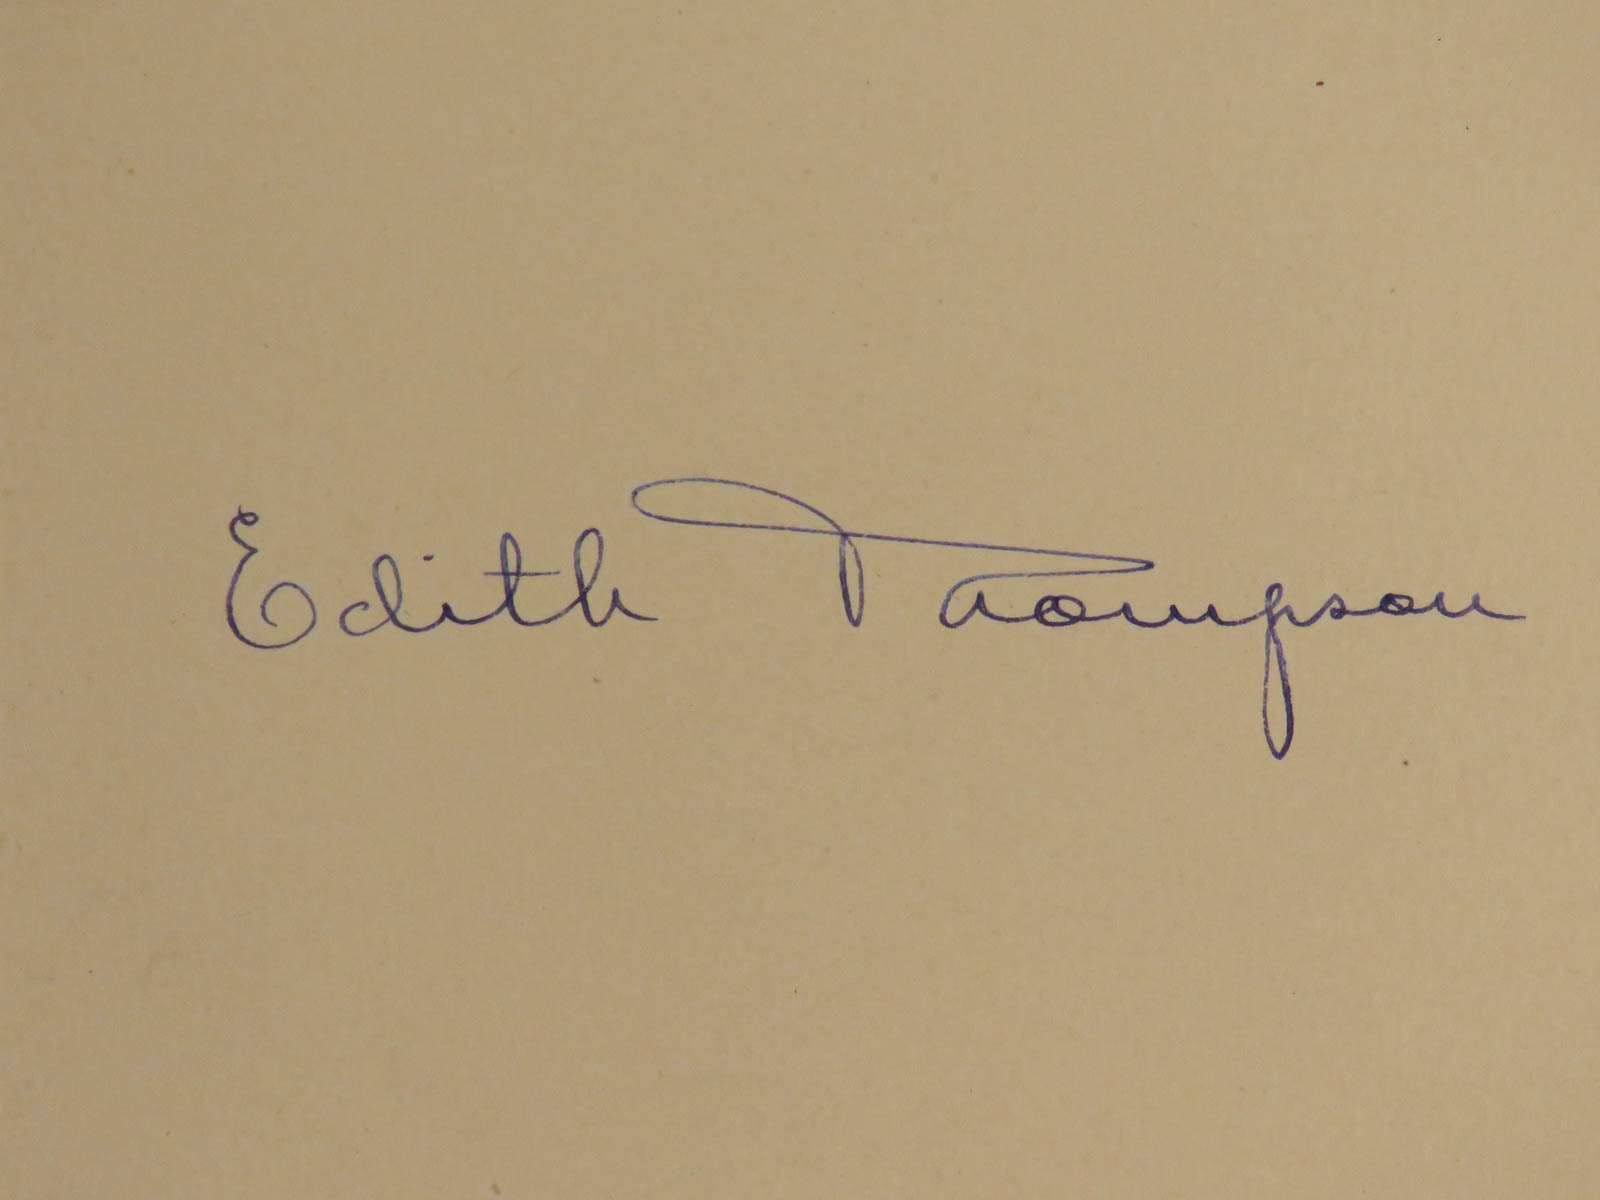 Edith Thompson